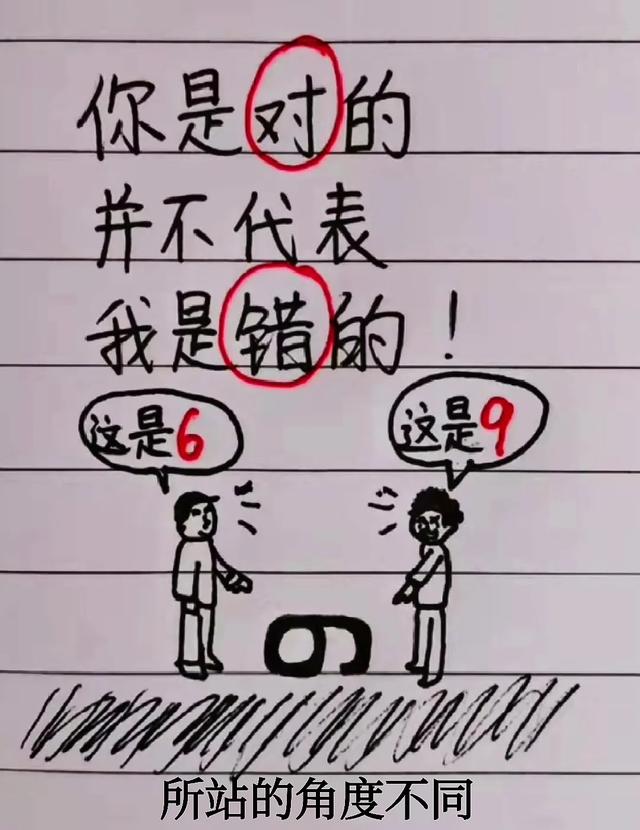 你是对的
并不代表
我是错的！
这是6
这是9
6
所站的角度不同